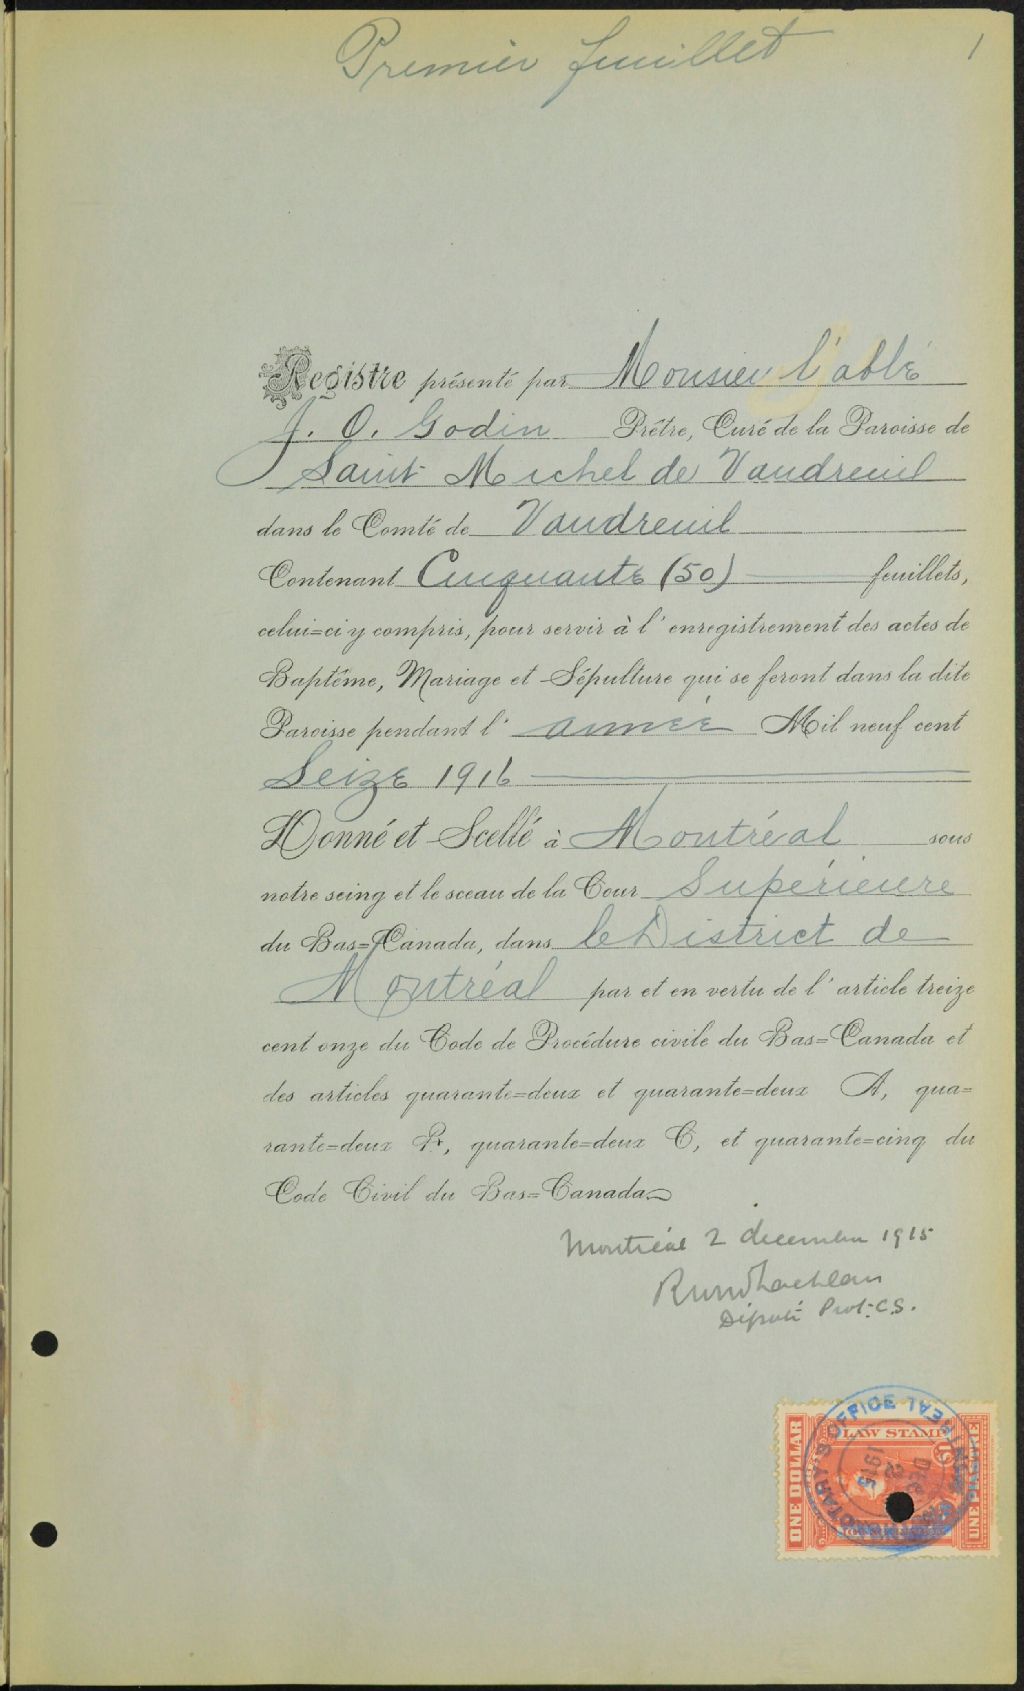 Premier feuillet
1
Registre présenté par Monsieur l'abbé
J. O. Godin Prêtre, Curé de la Paroisse de
Saint Michel de Vaudreuil
dans le Comté de Vaudreuil
Contenant Cinquante (50) feuillets,
celui=ci y compris, pour servir à l'enregistrement des actes de
Baptême, Mariage et Sépulture qui se feront dans la dite
Paroisse pendant l'année Mil neuf cent
Seize 1916
Donné et Scellé à Montréal sous
notre seing et le sceau de la Cour Supérieure
du Bas=Canada, dans le District de
Montréal par et en vertu de l'article treize
cent onze du Code de Procédure civile du Bas=Canada et
des articles quarante=deux et quarante=deux A, qua=
rante=deux B, quarante=deux C, et quarante=cinq du
Code Civil du Bas=Canada
Montréal 2 décembre 1915
Député Prot. C.S.
ONE DOLLAR
LAW STAMP
$1
UNE PIASTRE
OFFICE
MONTREAL
DEC
2
1915